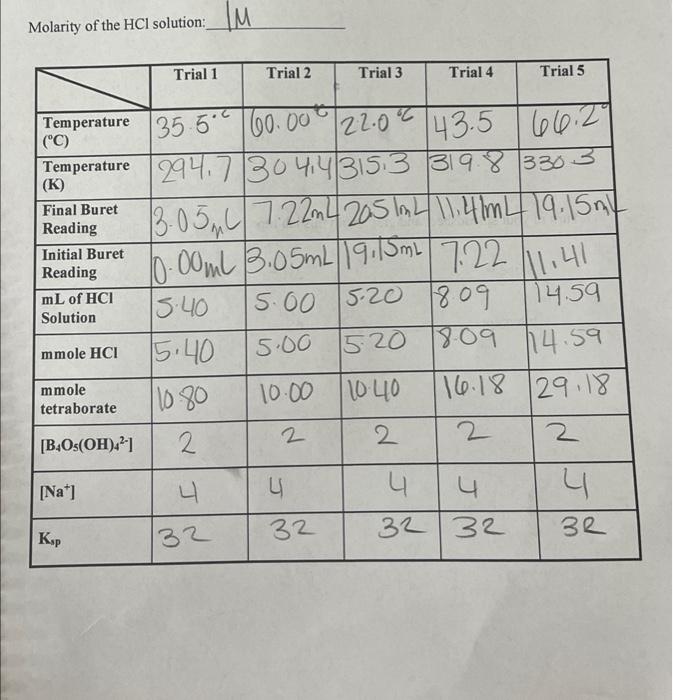 Molarity of the HCl solution: 1M
Trial 1 Trial 2 Trial 3 Trial 4 Trial 5
Temperature (°C) 35.5°C 60.00°C 22.0°C 43.5 66.2°
Temperature (K) 294.7 304.4 315.3 319.8 330.3
Final Buret Reading 3.05mL 7.22mL 20.51mL 11.41mL 19.15mL
Initial Buret Reading 0.00mL 3.05mL 19.15mL 7.22 11.41
mL of HCl Solution 5.40 5.00 5.20 8.09 14.59
mmole HCl 5.40 5.00 5.20 8.09 14.59
mmole tetraborate 10.80 10.00 10.40 16.18 29.18
[B₄O₅(OH)₄²⁻] 2 2 2 2 2
[Na⁺] 4 4 4 4 4
Ksp 32 32 32 32 32